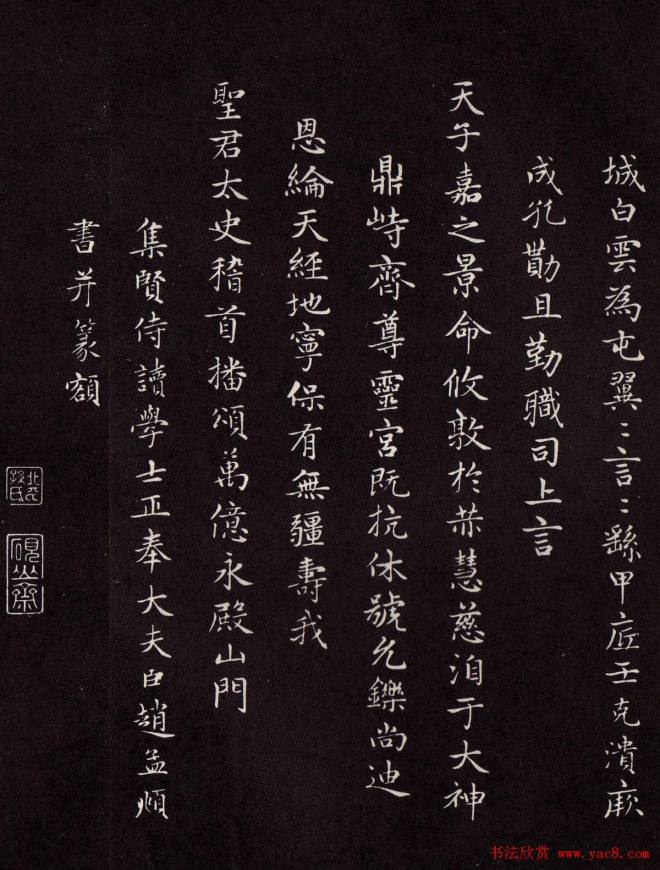 城白雲為屯翼〻言〻繇甲底壬克潰厥
成孔勩且勤職司上言
天子嘉之景命攸敦於恭慧慈洎于大神
鼎峙齊尊靈宮既抗休號允鑠尚迪
恩綸天經地寧保有無疆壽我
聖君太史稽首播頌萬億永殿山門
集賢侍讀學士正奉大夫臣趙孟頫
書并篆額
硯山齋
书法欣赏 www.yac8.com